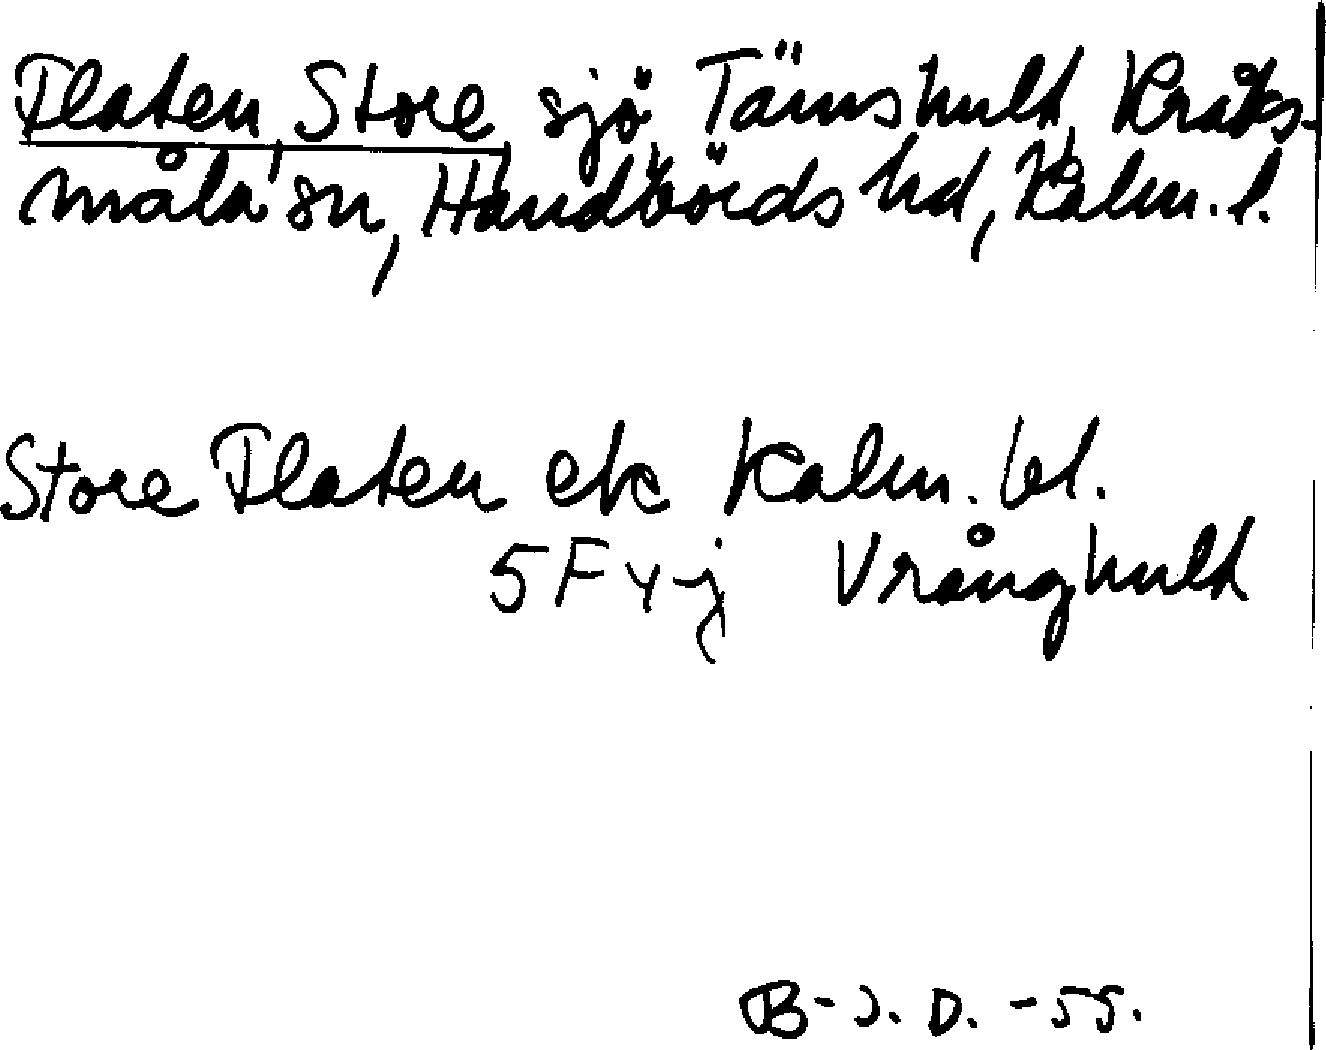 Flaten, Store, sjö, Tämshult, Kråks-
måla sn, Handbörds hd, Kalm. l.
Store Flaten ek Kalm. bl.
5 F y-j Vrånghult
B-J. D. -55.